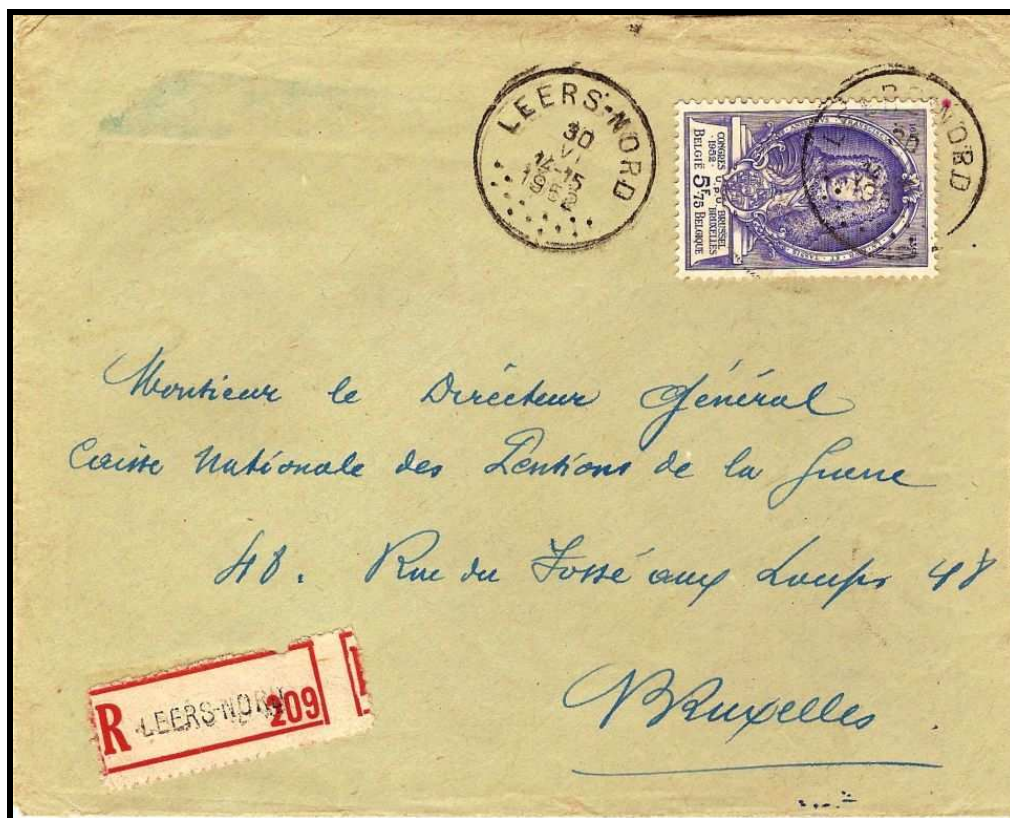 LEERS-NORD
30
VI
14-15
1952
CONGRES U.P.U BRUSSEL
1952 BRUXELLES
BELGIË 5F.75 BELGIQUE
NORD
Monsieur le Directeur Général
Caisse Nationale des Pensions de la Guerre
48. Rue du Fossé aux Loups 48
Bruxelles
R LEERS-NORD 209